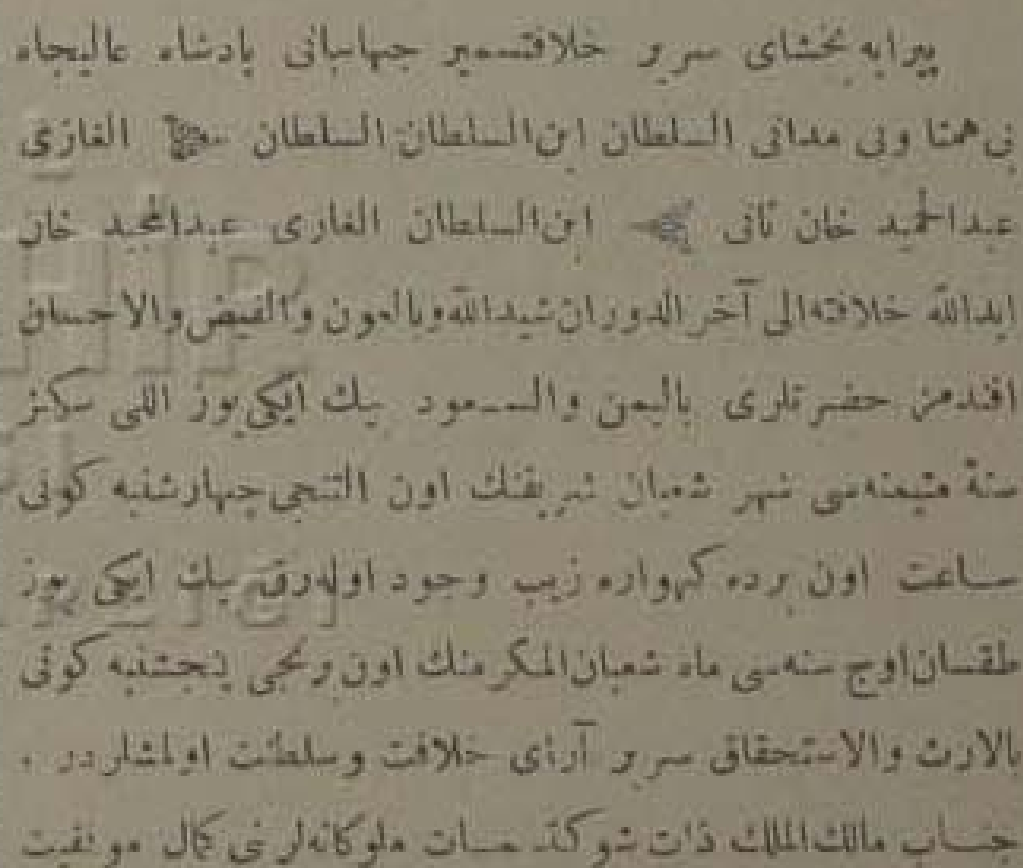 پیرایه بخشای سریر خلافتسمیر جهانبانی پادشاه عالیجاه
بی همتا وبی مدانی السلطان ابن السلطان السلطان الغازی
عبدالحمید خان ثانی ابن السلطان الغازی عبدالمجید خان
ایدالله خلافته الی آخر الدوران شیدالله وبالعون والفیض والاحسان
افندمز حضرتلری بالیمن والسعود بیك ایکی یوز اللی سکز
سنهٔ متیمنه سی شهر شعبان شریفنك اون التنجی چهارشنبه کونی
ساعت اون برده کهواره زیب وجود اوله رق بیك ایکی یوز
طقسان اوچ سنه سی ماه شعبان المکرمنك اون برنجی پنجشنبه کونی
بالارث والاستحقاق سریر آرای خلافت وسلطنت اولمشلردر .
جناب مالك الملك ذات شوکتسمات ملوکانه لرنی کمال موفقیت